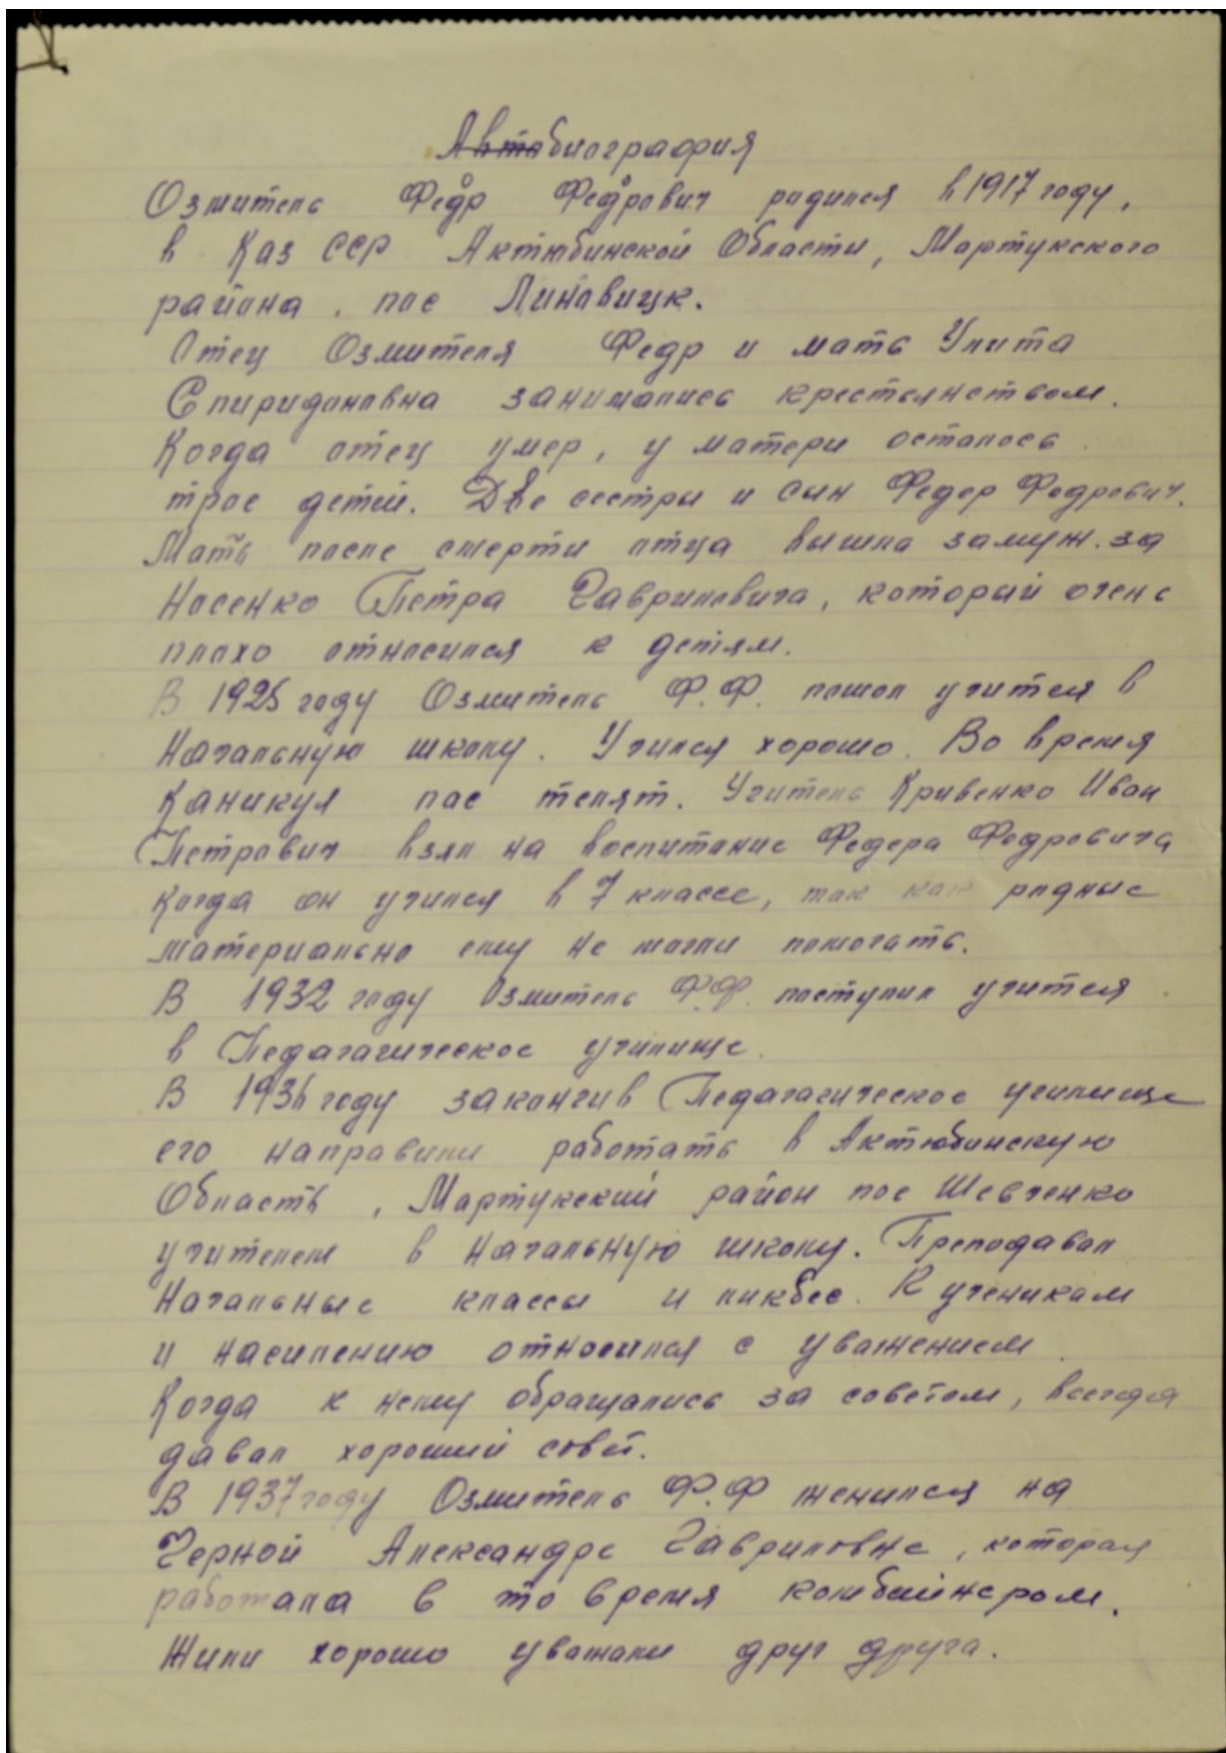 Автобиография
Озмитель Федор Федорович родился в 1917 году,
в Каз ССР Актюбинской Области, Мартукского
района, пос Линовицк.
Отец Озмителя Федр и мать Улита
Спиридоновна занимались крестьянством.
Когда отец умер, у матери осталось
трое детей. Две сестры и сын Федер Федрович.
Мать после смерти отца вышла замуж за
Носенко Петра Гавриловича, который очень
плохо относился к детям.
В 1925 году Озмитель Ф.Ф. пошол учится в
Начальную школу. Учился хорошо. Во время
Каникул пас телят. Учитель Кривенко Иван
Петрович взял на воспитание Федера Федровича
когда он учился в 7 классе, так как родные
материально ему не могли помогать.
В 1932 году Озмитель Ф.Ф. поступил учится
в Педагагическое училище.
В 1936 году закончив Педагагическое училище
его направили работать в Актюбинскую
Область, Мартукский район пос Шевченко
учителем в Начальную школу. Преподавал
Начальные классы и ликбес. К ученикам
и насилению относился с уважением.
Когда к нему обращались за советом, всегда
давал хороший совет.
В 1937 году Озмитель Ф.Ф женился на
Черной Александре Гавриловне, которая
работала в то время комбайнером.
Жили хорошо уважали друг друга.